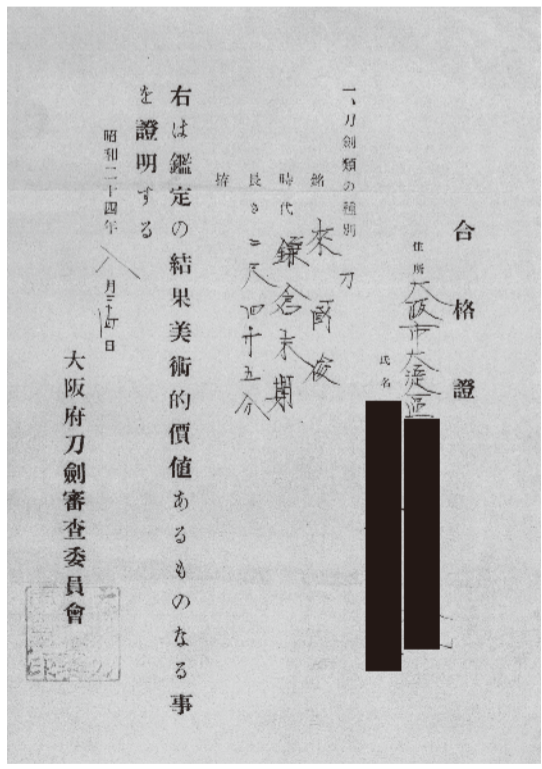 合格證
住所 大阪市大淀區
氏名
一、刀劍類の種別 刀
銘 來國俊
時代 鎌倉末期
長さ 二尺四寸五分
拵
右は鑑定の結果美術的價値あるものなる事
を證明する
昭和二十四年八月 日
大阪府刀劍審査委員會